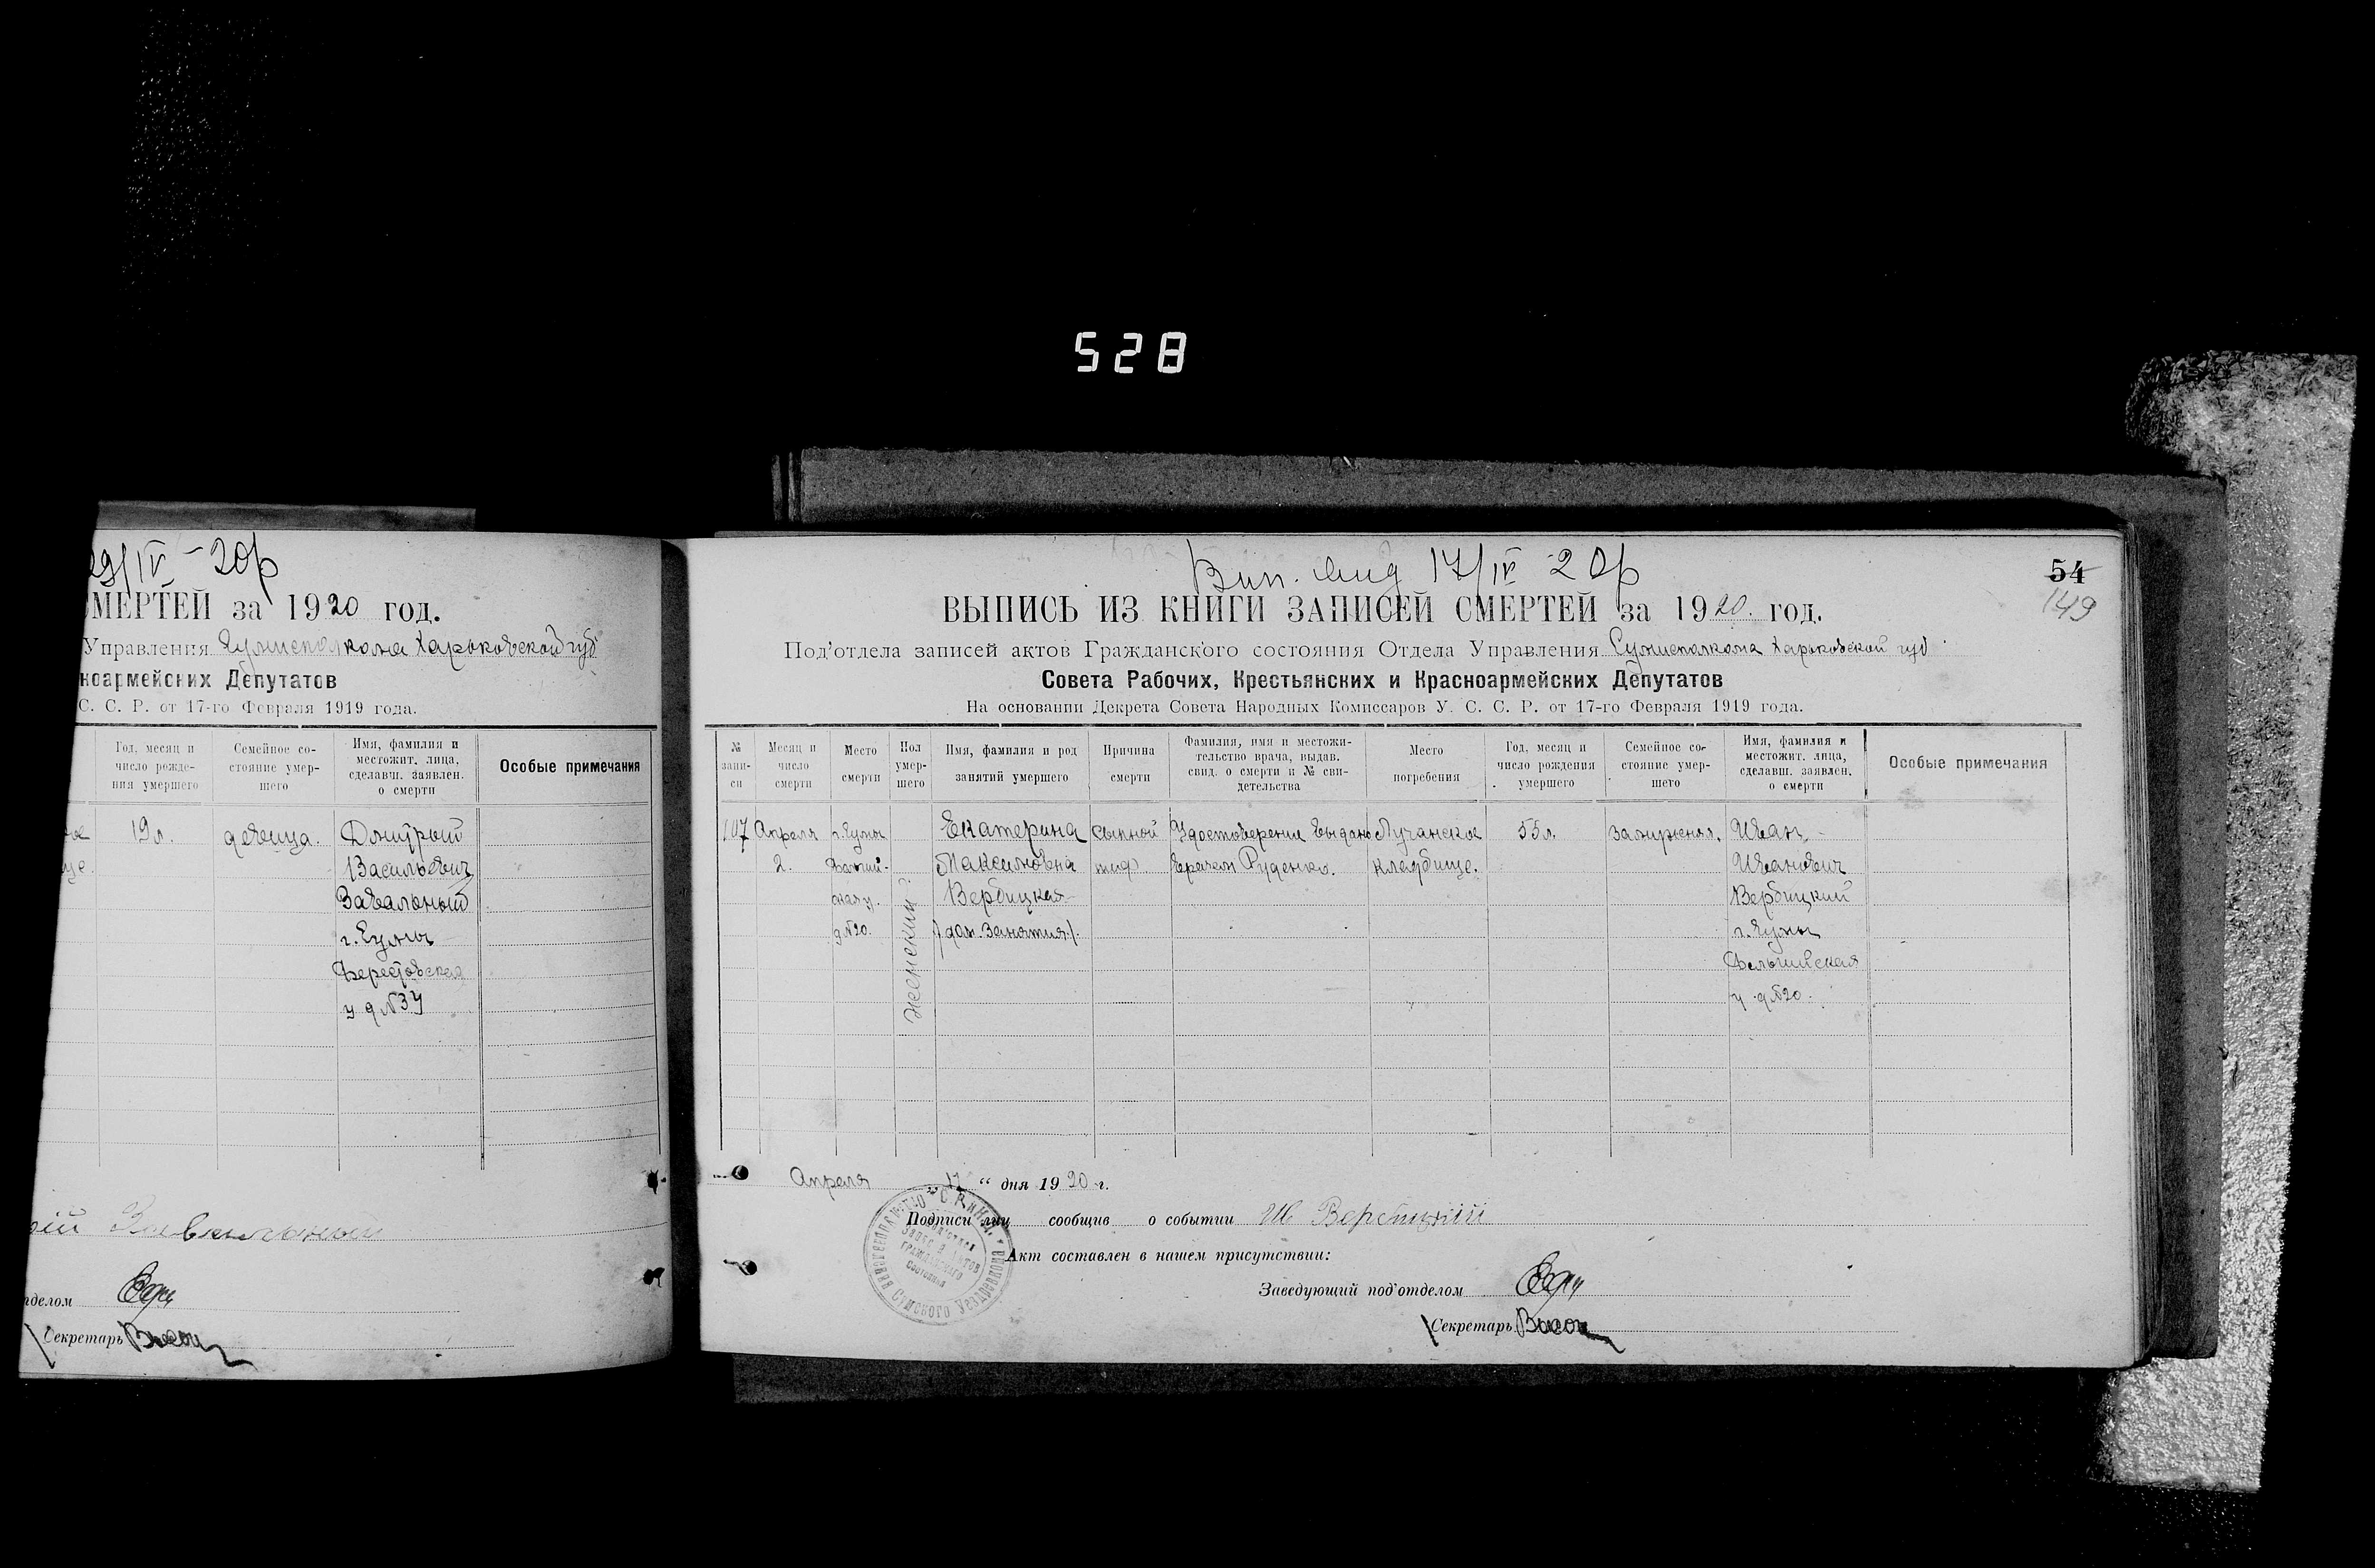 528
29/IV - 20р
МЕРТЕЙ за 1920 год.
Управления Сумисполкома Харьковской губ
ноармейских Депутатов
С. С. Р. от 17-го Февраля 1919 года.
Год, месяц и число рожде-ния умершего
Семейное со-стояние умер-шего
Имя, фамилия и местожит. лица, сделавш. заявлен. о смерти
Особые примечания
19 л.
девица.
Дмитрый
Васильевич
Завальный
г. Сумы
у д №34
Завальный
отделом
Секретарь
54
149
Вип. 17/IV 20р
ВЫПИСЬ ИЗ КНИГИ ЗАПИСЕЙ СМЕРТЕЙ за 1920. год.
Под'отдела записей актов Гражданского состояния Отдела Управления Сумисполкома Харьковской губ
Совета Рабочих, Крестьянских и Красноармейских Депутатов
На основании Декрета Совета Народных Комиссаров У. С. С. Р. от 17-го Февраля 1919 года.
№ запи-си
Месяц и число смерти
Место смерти
Пол умер-шего
Имя, фамилия и род занятий умершего
Причина смерти
Фамилия, имя и местожи-тельство врача, выдав. свид. о смерти и № сви-детельства
Место погребения
Год, месяц и число рождения умершего
Семейное со-стояние умер-шего
Имя, фамилия и местожит. лица, сделавш. заявлен. о смерти
Особые примечания
107
Апреля
2.
г. Сумы
д №20.
Женский
Екатерина
Максимовна
Вербицкая
/дом. занятия/.
сыпной
тиф
Удостоверение выдано
врачем Руденко.
Лучанское
кладбище.
55 л.
замужняя.
Иван
Иванович
Вербицкий
г. Сумы
Бельгийская
у д №20.
Апреля 17 “ дня 1920 г.
Подписи лиц сообщив о событии Ив Вербицкий
Акт составлен в нашем присутствии:
Заведующий под'отделом
Секретарь